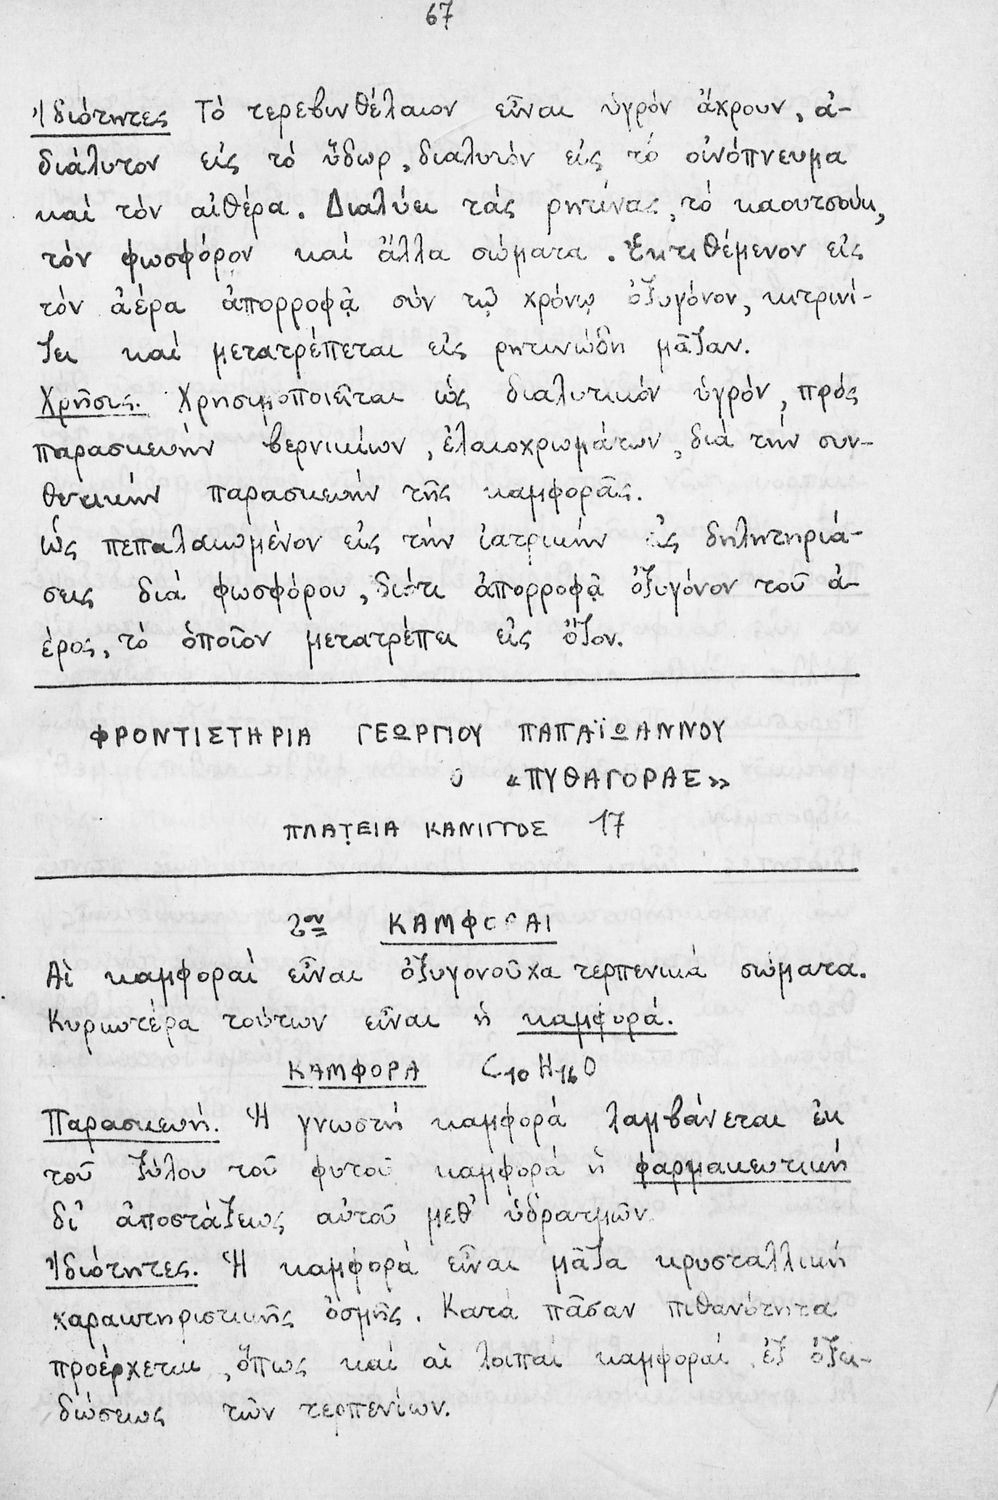 67
Ἰδιότητες Τό τερεβινθέλαιον εἶναι ὑγρόν ἄχρουν, ἀ-
διάλυτον εἰς τό ὕδωρ, διαλυτόν εἰς τό οἰνόπνευμα
καί τόν αἰθέρα. Διαλύει τάς ρητίνας, τό καουτσούκ,
τόν φωσφόρον καί ἄλλα σώματα. Ἐκτιθέμενον εἰς
τόν ἀέρα ἀπορροφᾷ σύν τῷ χρόνῳ ὀξυγόνον, κιτρινί-
ζει καί μετατρέπεται εἰς ρητινώδη μᾶζαν.
Χρῆσις. Χρησιμοποιεῖται ὡς διαλυτικόν ὑγρόν, πρός
παρασκευήν βερνικίων, ἐλαιοχρωμάτων, διά τήν συν-
θετικήν παρασκευήν τῆς καμφορᾶς.
Ὡς πεπαλαιωμένον εἰς τήν ἰατρικήν εἰς δηλητηριά-
σεις διά φωσφόρου, διότι ἀπορροφᾷ ὀξυγόνον τοῦ ἀ-
έρος, τό ὁποῖον μετατρέπει εἰς ὄζον.
ΦΡΟΝΤΙΣΤΗΡΙΑ ΓΕΩΡΓΙΟΥ ΠΑΠΑΪΩΑΝΝΟΥ
Ο «ΠΥΘΑΓΟΡΑΣ»
ΠΛΑΤΕΙΑ ΚΑΝΙΓΓΟΣ 17
2ον ΚΑΜΦΟΡΑΙ
Αἱ καμφοραί εἶναι ὀξυγονοῦχα τερπενικά σώματα.
Κυριωτέρα τούτων εἶναι ἡ καμφορά.
ΚΑΜΦΟΡΑ C10H16O
Παρασκευή. Ἡ γνωστή καμφορά λαμβάνεται ἐκ
τοῦ ξύλου τοῦ φυτοῦ καμφορά ἡ φαρμακευτική
δι' ἀποστάξεως αὐτοῦ μεθ' ὑδρατμῶν.
Ἰδιότητες. Ἡ καμφορά εἶναι μᾶζα κρυσταλλική
χαρακτηριστικῆς ὀσμῆς. Κατά πᾶσαν πιθανότητα
προέρχεται, ὅπως καί αἱ λοιπαί καμφοραί ἐξ ὀξει-
δώσεως τῶν τερπενίων.